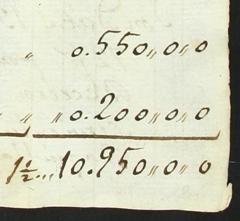 „ 0.550„0„0
„ „0.200„0„0
1½...10.950„0„0